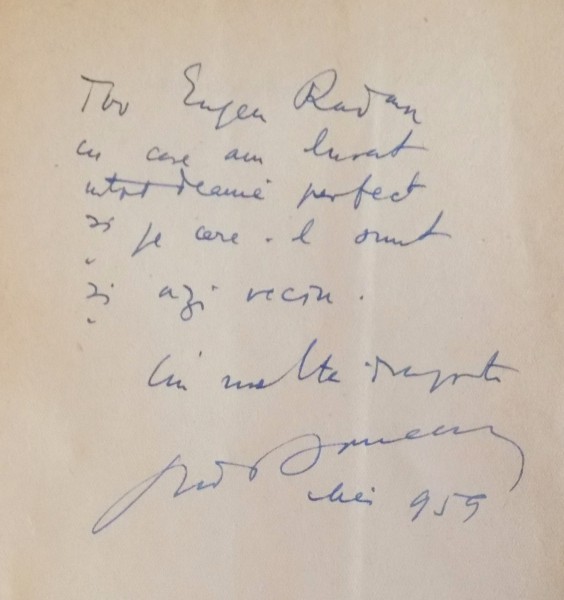 Tov Eugen Radan
cu care am lucrat
totdeauna perfect
și pe care-l simt
și azi vecin.
Cu multă dragoste
Mai 959